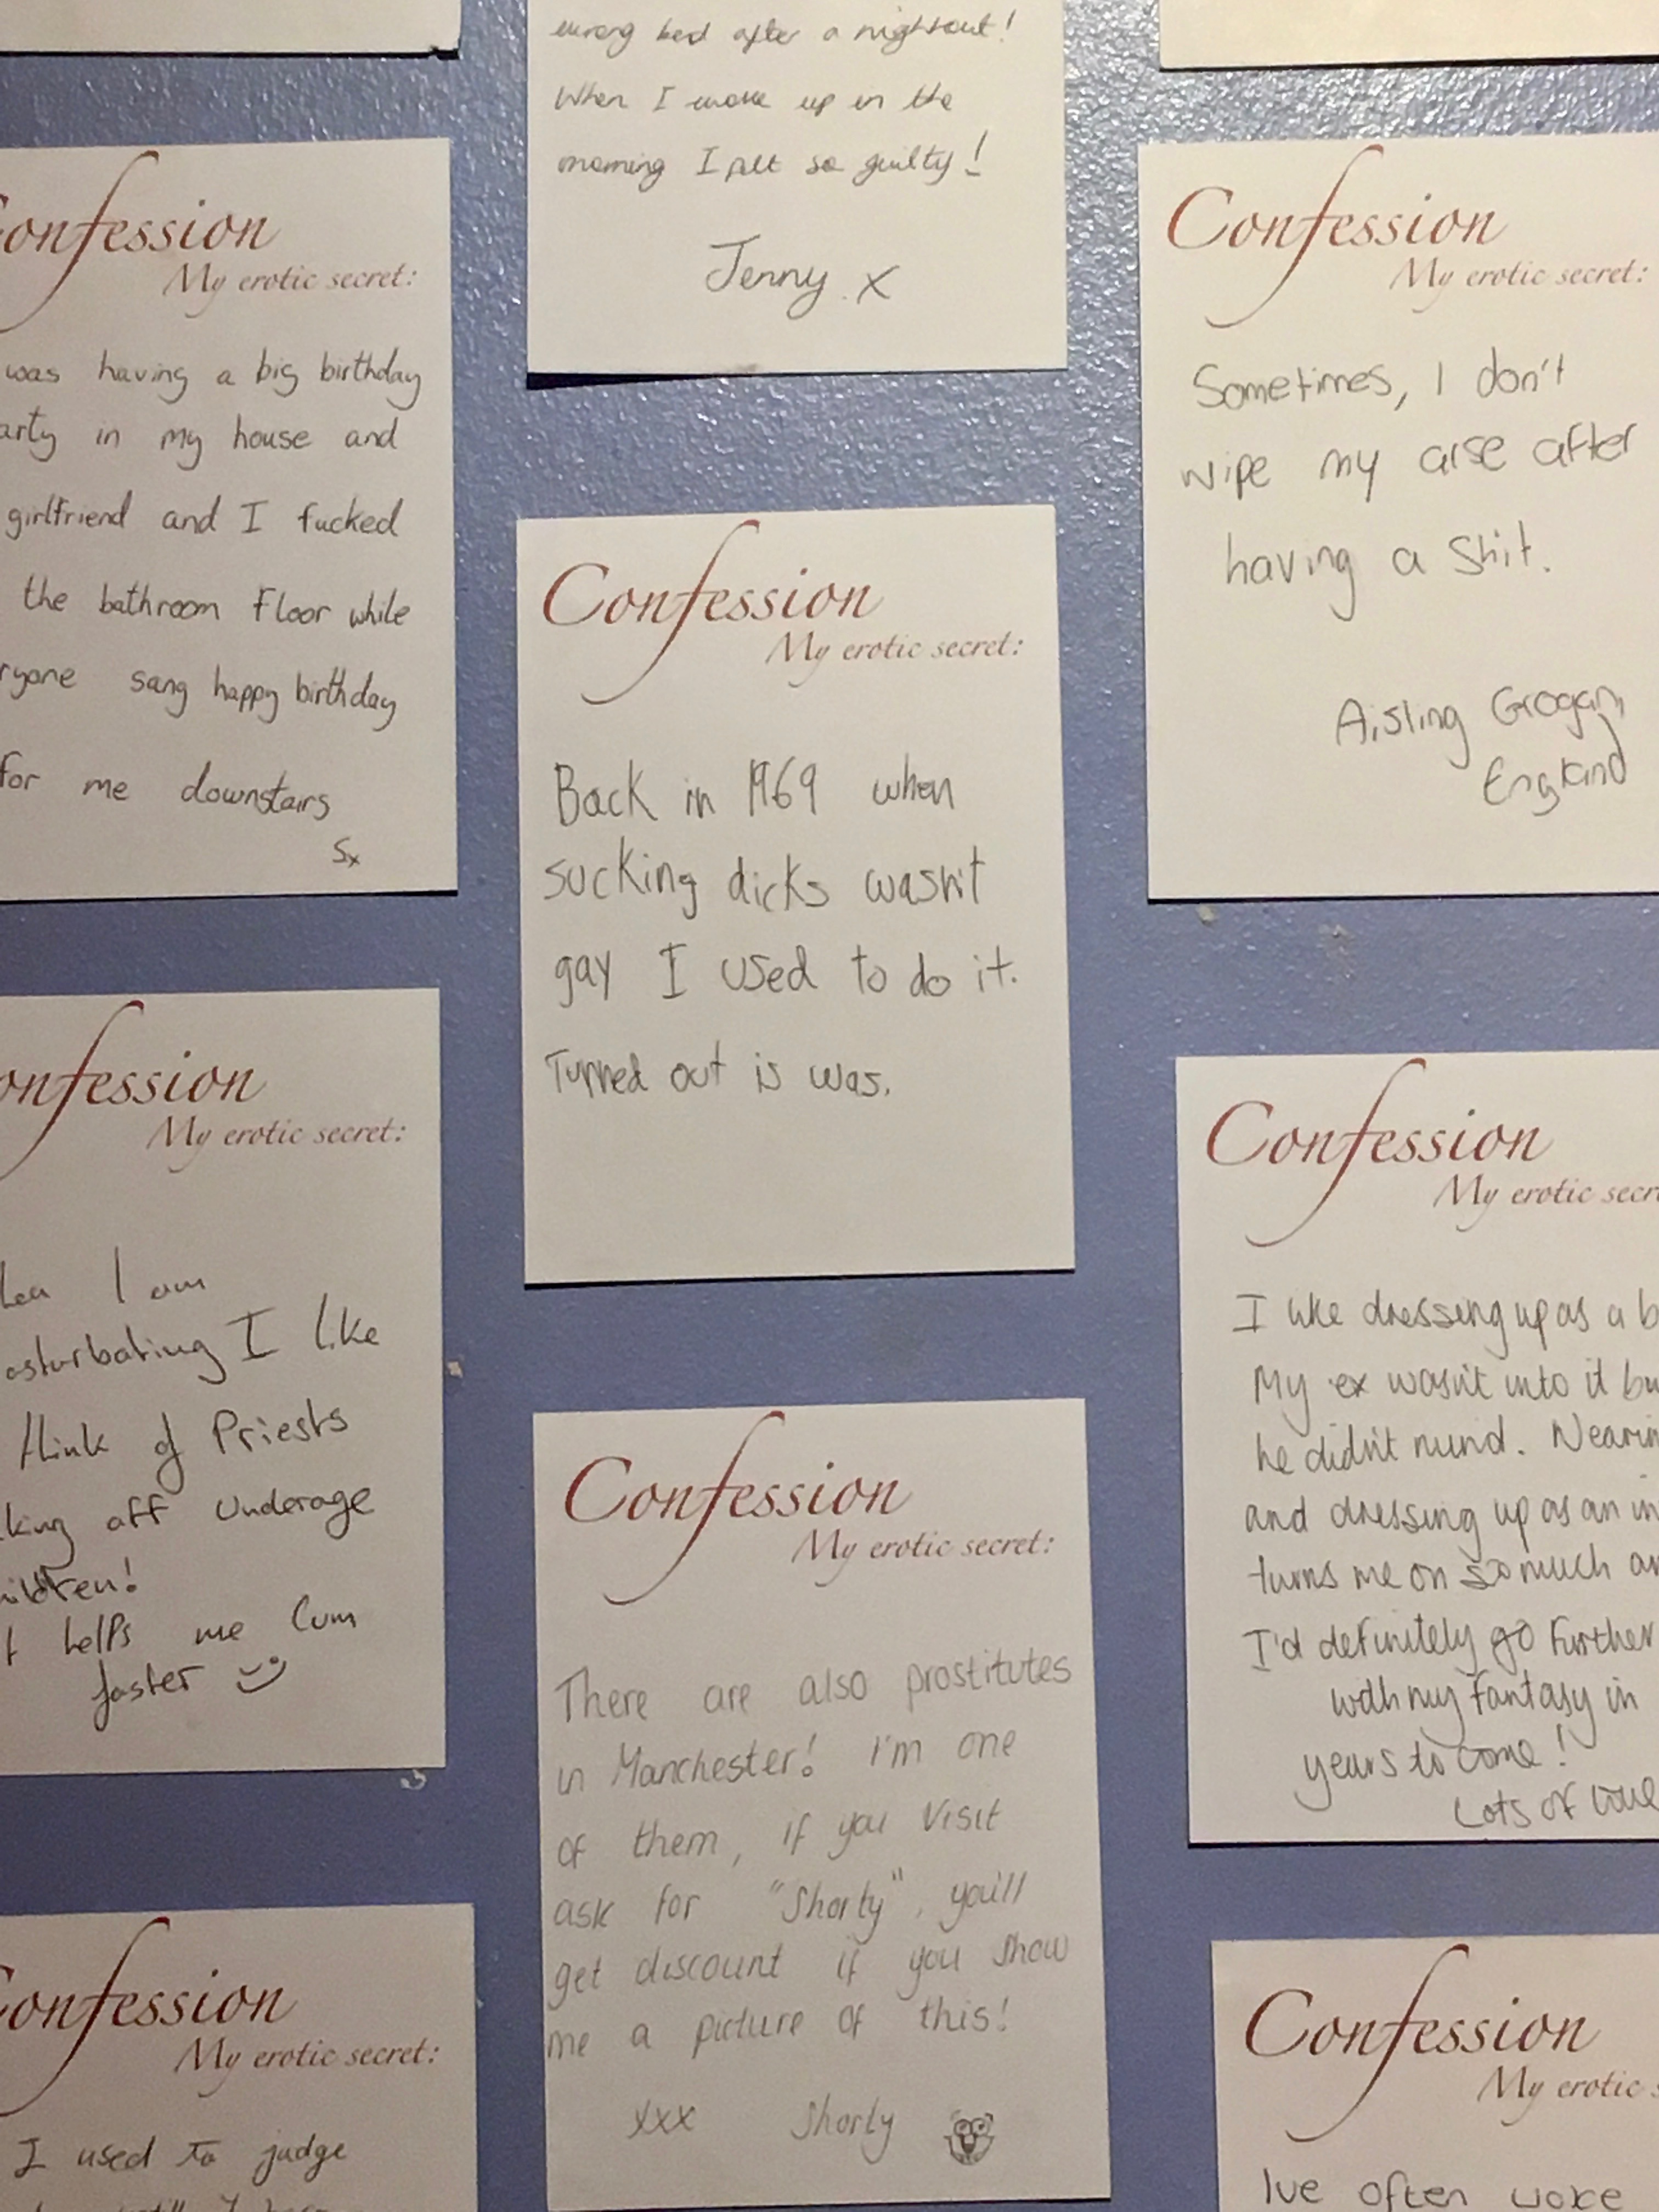 wrong bed after a nightout!
When I woke up in the
morning I felt so guilty!
Jenny. x
onfession
My erotic secret:
was having a big birthday
arty in my house and
girlfriend and I fucked
the bathroom Floor while
ryone sang happy birthday
for me downstairs
Sx
Confession
My erotic secret:
Sometimes, I don't
wipe my arse after
having a shit.
Aisling Grogan
England
Confession
My erotic secret:
Back in 1969 when
sucking dicks wasn't
gay I used to do it.
Turned out is was.
onfession
My erotic secret:
Confession
My erotic secr
I like dressing up as a b
My ex wasn't into it bu
he didn't mind. Nearin
and dressing up as an in
turns me on so much an
I'd definitely go further
with my fantasy in
years to come!
Lots of love
Confession
My erotic secret:
There are also prostitutes
in Manchester! I'm one
of them, if you visit
ask for "Shorty", you'll
get discount if you show
me a picture of this!
xxx Shorty
onfession
My erotic secret:
I used to judge
Confession
My erotic s
Ive often woke